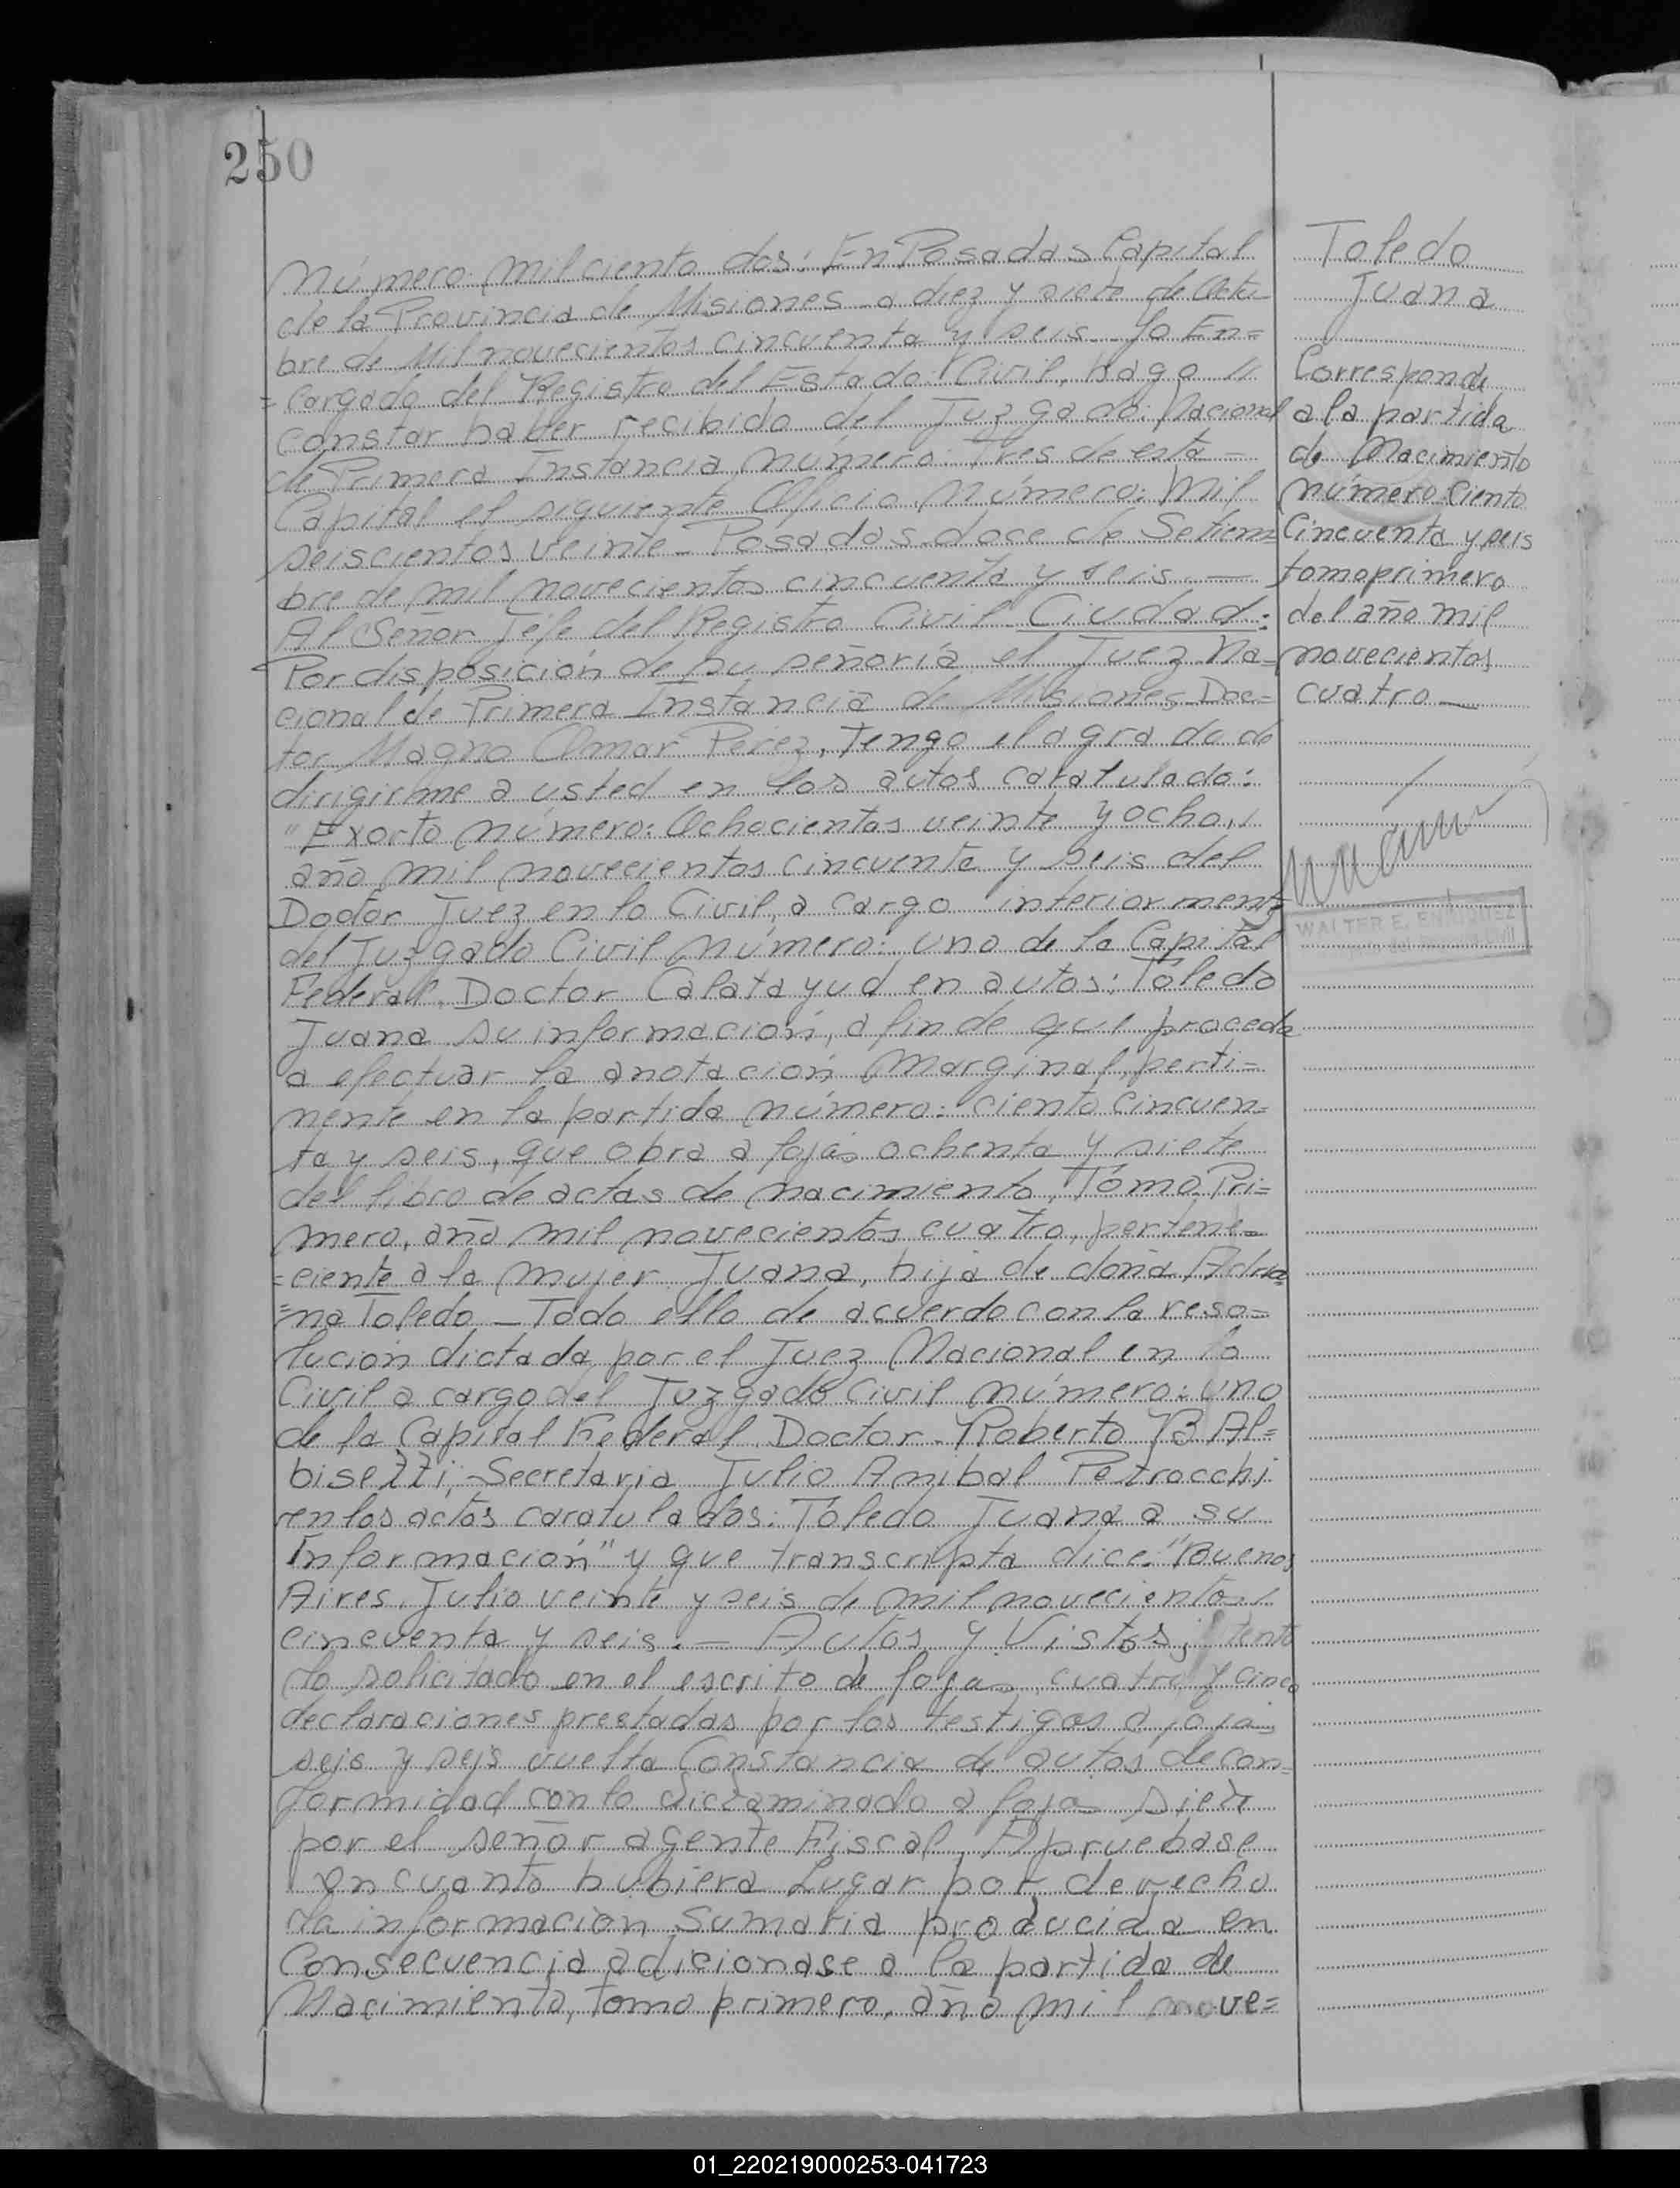 250
Número: mil ciento dos: En Posadas Capital
de la Provincia de Misiones a diez y siete de Octu-
bre de Mil novecientos cincuenta y seis Yo En=
=cargado del Registro del Estado Civil, hago "
constar haber recibido del Juzgado: Nacional
de Primera Instancia, número: Tres de esta -
Capital el siguiente Oficio Número: Mil
seiscientos veinte - Posadas doce de Setiem=
bre de mil novecientos cincuenta y seis. -
Al Señor Jefe del Registro Civil Ciudad:
Por disposición de su señoría el Juez Na=
cional de Primera Instancia de Misiones Doc=
tor Magno Omar Perez, Tengo el agrado de
dirigirme a usted en los autos caratulado:
"Exorto número: Ochocientos veinte y ocho,,
año mil novecientos cincuenta y seis del
Doctor Juez en lo Civil, a cargo interiormente
del Juzgado Civil número: uno de la Capital
Federal. Doctor Calatayud en autos: Toledo
Juana su información, a fin de que proceda
a efectuar la anotación Marginal, perti=
nente en la partida número: ciento cincuen=
ta y seis, que obra a fojas ochenta y siete
del libro de actas de nacimiento, Tomo Pri=
mero, año mil novecientos cuatro, pertene=
=ciente a la mujer Juana, hija de doña Adria=
=na Toledo - Todo ello de acuerdo con la reso=
lución dictada por el Juez Nacional en lo
Civil a cargo del Juzgado Civil número: uno
de la Capital Federal Doctor - Roberto B Al=
bisetti, Secretaria Julio Anibal Petrocchi
en los actos caratulados: Toledo Juana a su
Información" y que transcripta dice: "Buenos
Aires, Julio veinte y seis de mil novecientos
cincuenta y seis. - Autos y Vistos; tento
lo solicitado en el escrito de fojas cuatro y cinco
declaraciones prestadas por los testigos a fojas
seis y seis vuelta Constancia de autos de con=
formidad con lo dictaminado a fojas siete
por el señor agente Fiscal, Apruebase
en cuanto hubiera Lugar por derecho
la información Sumaria producida en
Consecuencia adicionase a la partida de
Nacimiento, Tomo primero, año mil nove=
Toledo
Juana
Corresponde
a la partida
de Nacimiento
número: Ciento
Cincuenta y seis
tomo primero
del año mil
novecientos
cuatro -
WALTER E. ENRIQUEZ
01_220219000253-041723